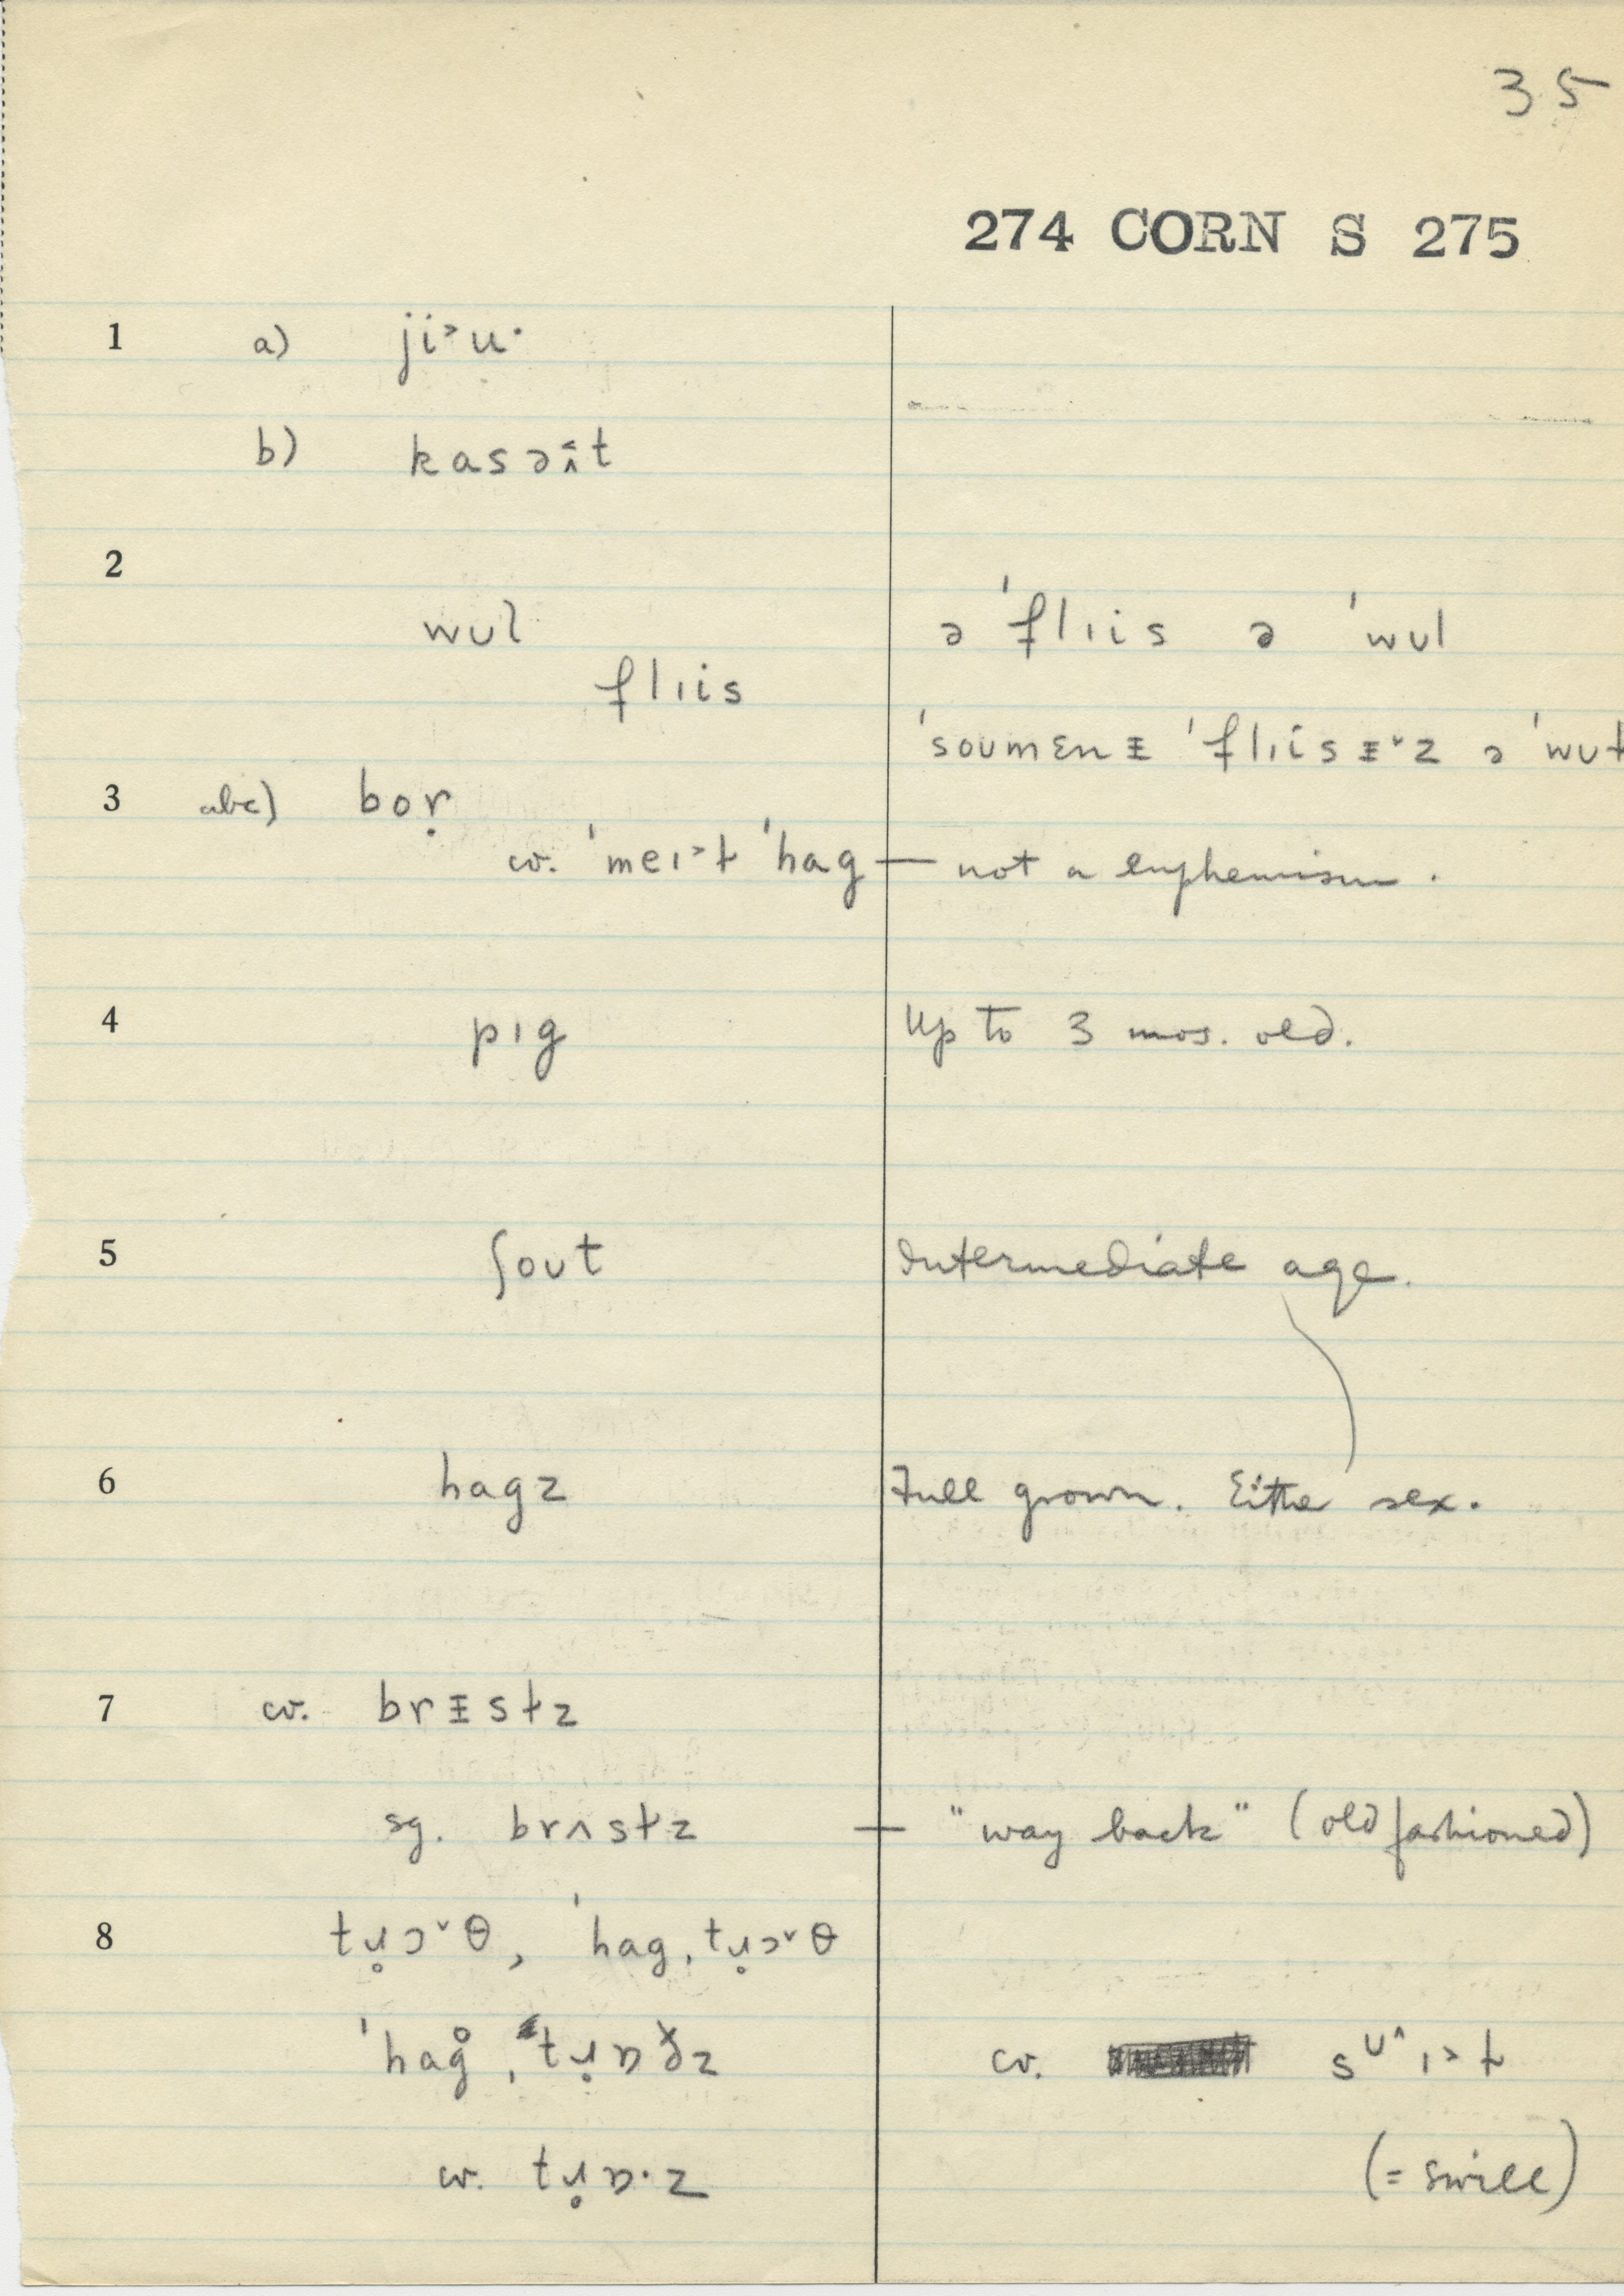 35
274 CORN S 275
1 a) ji˃u·
b) kasəɨ̂t
2
wʊl ə ˈflɪis ə ˈwʊl
flɪis
ˈsoʊmɛnᵻ ˈflɪisᵻ˅z ə ˈwʊɫ
3 abc) boṛ
cv. ˈmeɪ˃ɫ ˈhag — not a euphemism.
4 pɪg Up to 3 mos. old.
5 ʃoʊt Intermediate age.
6 hagz Full grown. Either sex.
7 cv. brᵻstz
sg. brʌstz — "way back" (old fashioned)
8 tɹ̥ɔ˅θ, ˈhagˌtɹ̥ɔ˅θ
ˈhag̊ˌtɹ̥ɒðz cv. sᶷ^ɪ˃ɫ
cv. tɹ̥ɒ·z (= swill)